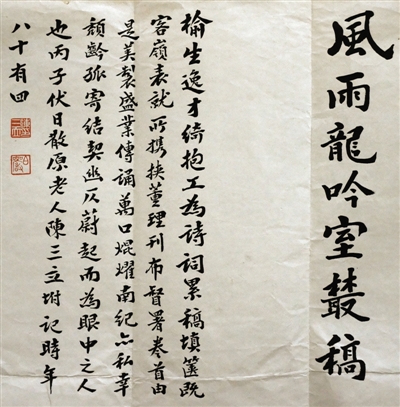 風雨龍吟室叢稿
榆生逸才綺抱工為詩詞累稿填篋既
客嶺表就所攜挾董理刊布督署卷首由
是美製盛業傳誦萬口焜耀南紀亦私幸
頹齡孤寄結契幽仄蔚起而為眼中之人
也丙子伏日散原老人陳三立坿記時年
八十有四